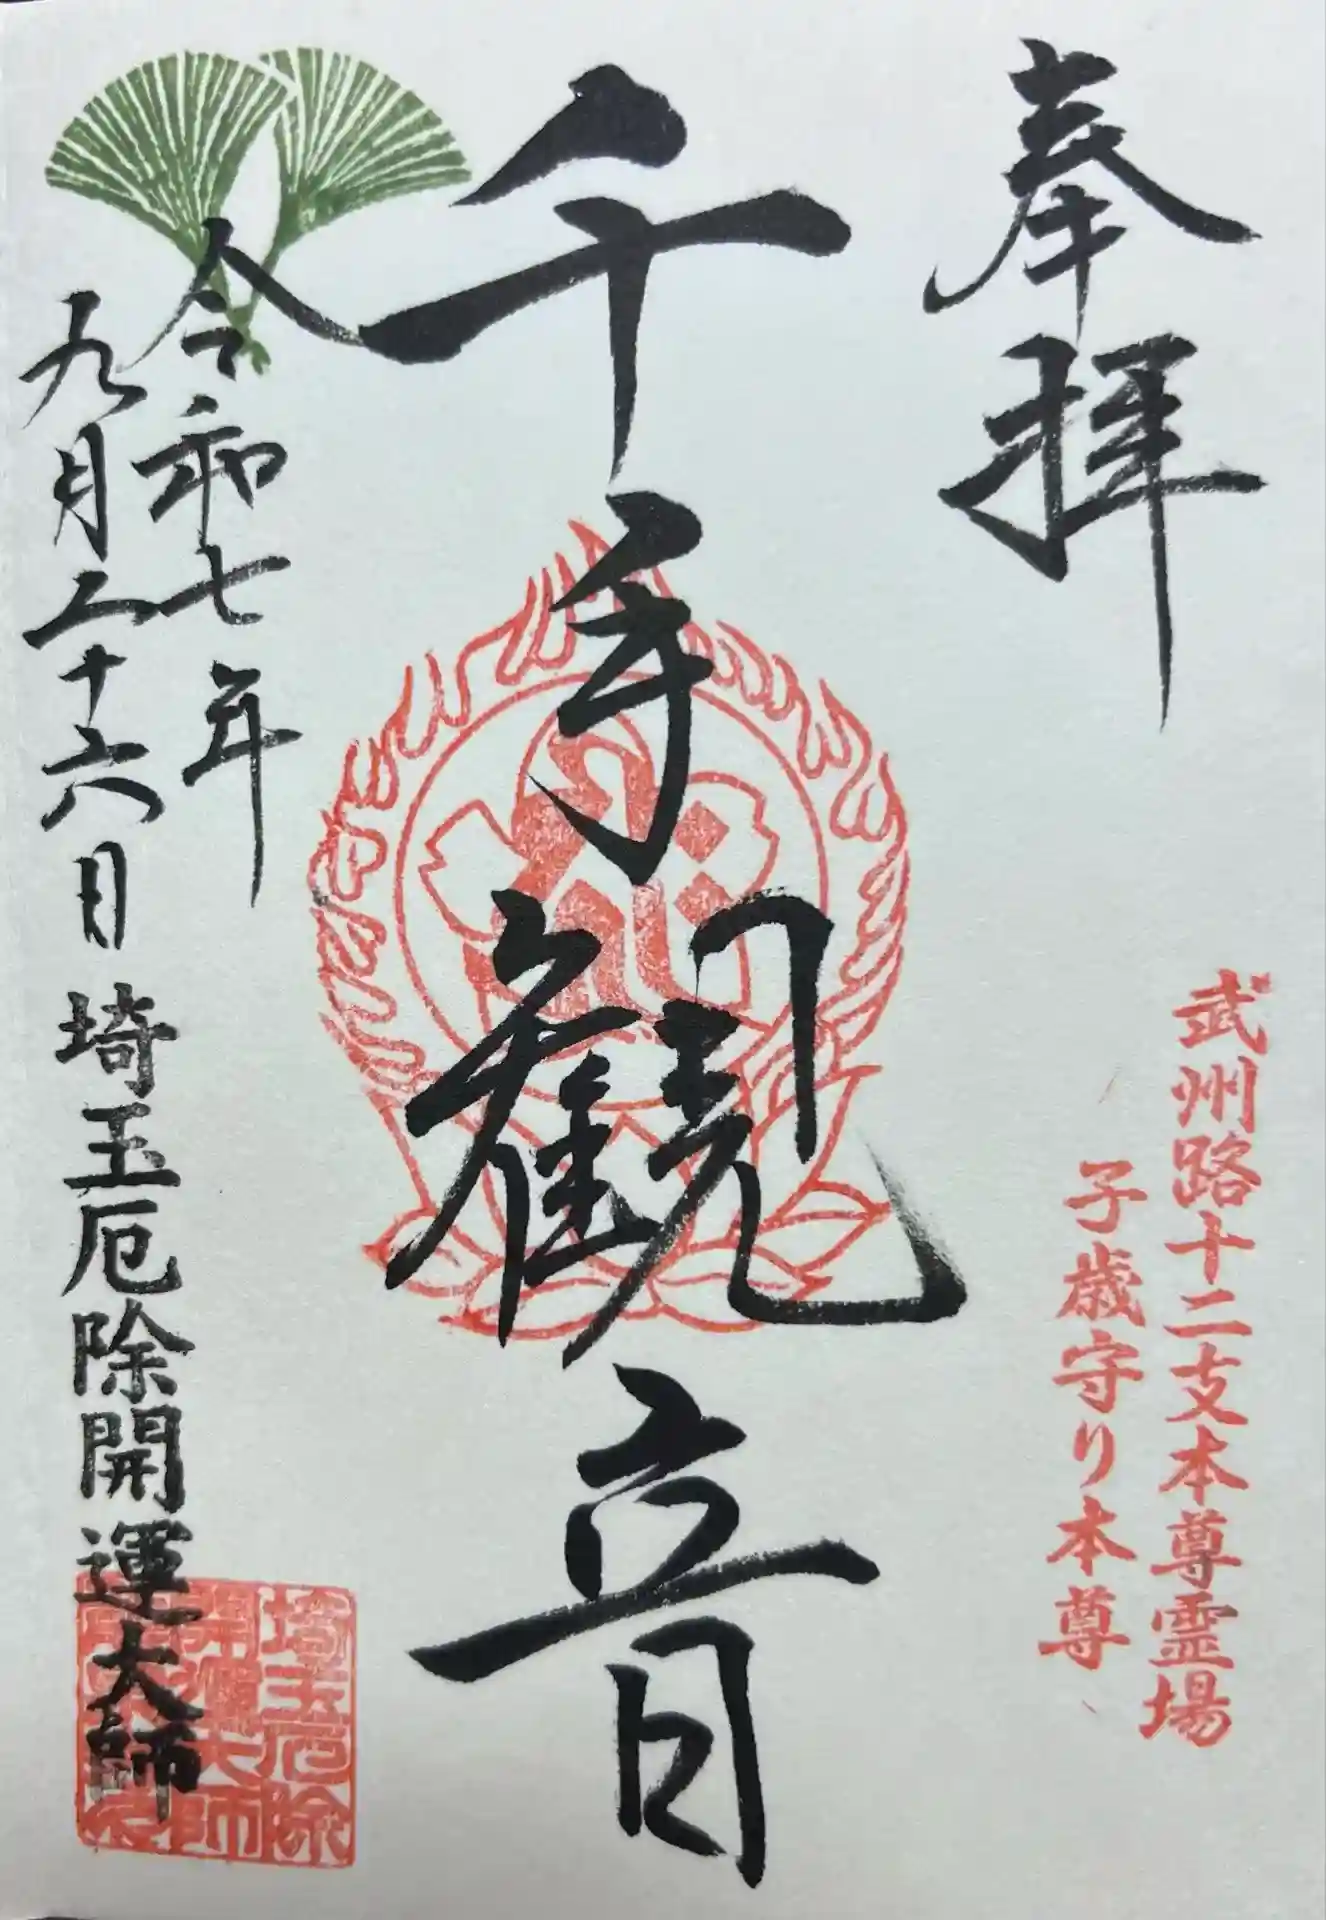 奉拝
武州路十二支本尊霊場
子歳守り本尊
千手観音
令和七年
九月二十六日
埼玉厄除開運大師
埼玉厄除
開運大師